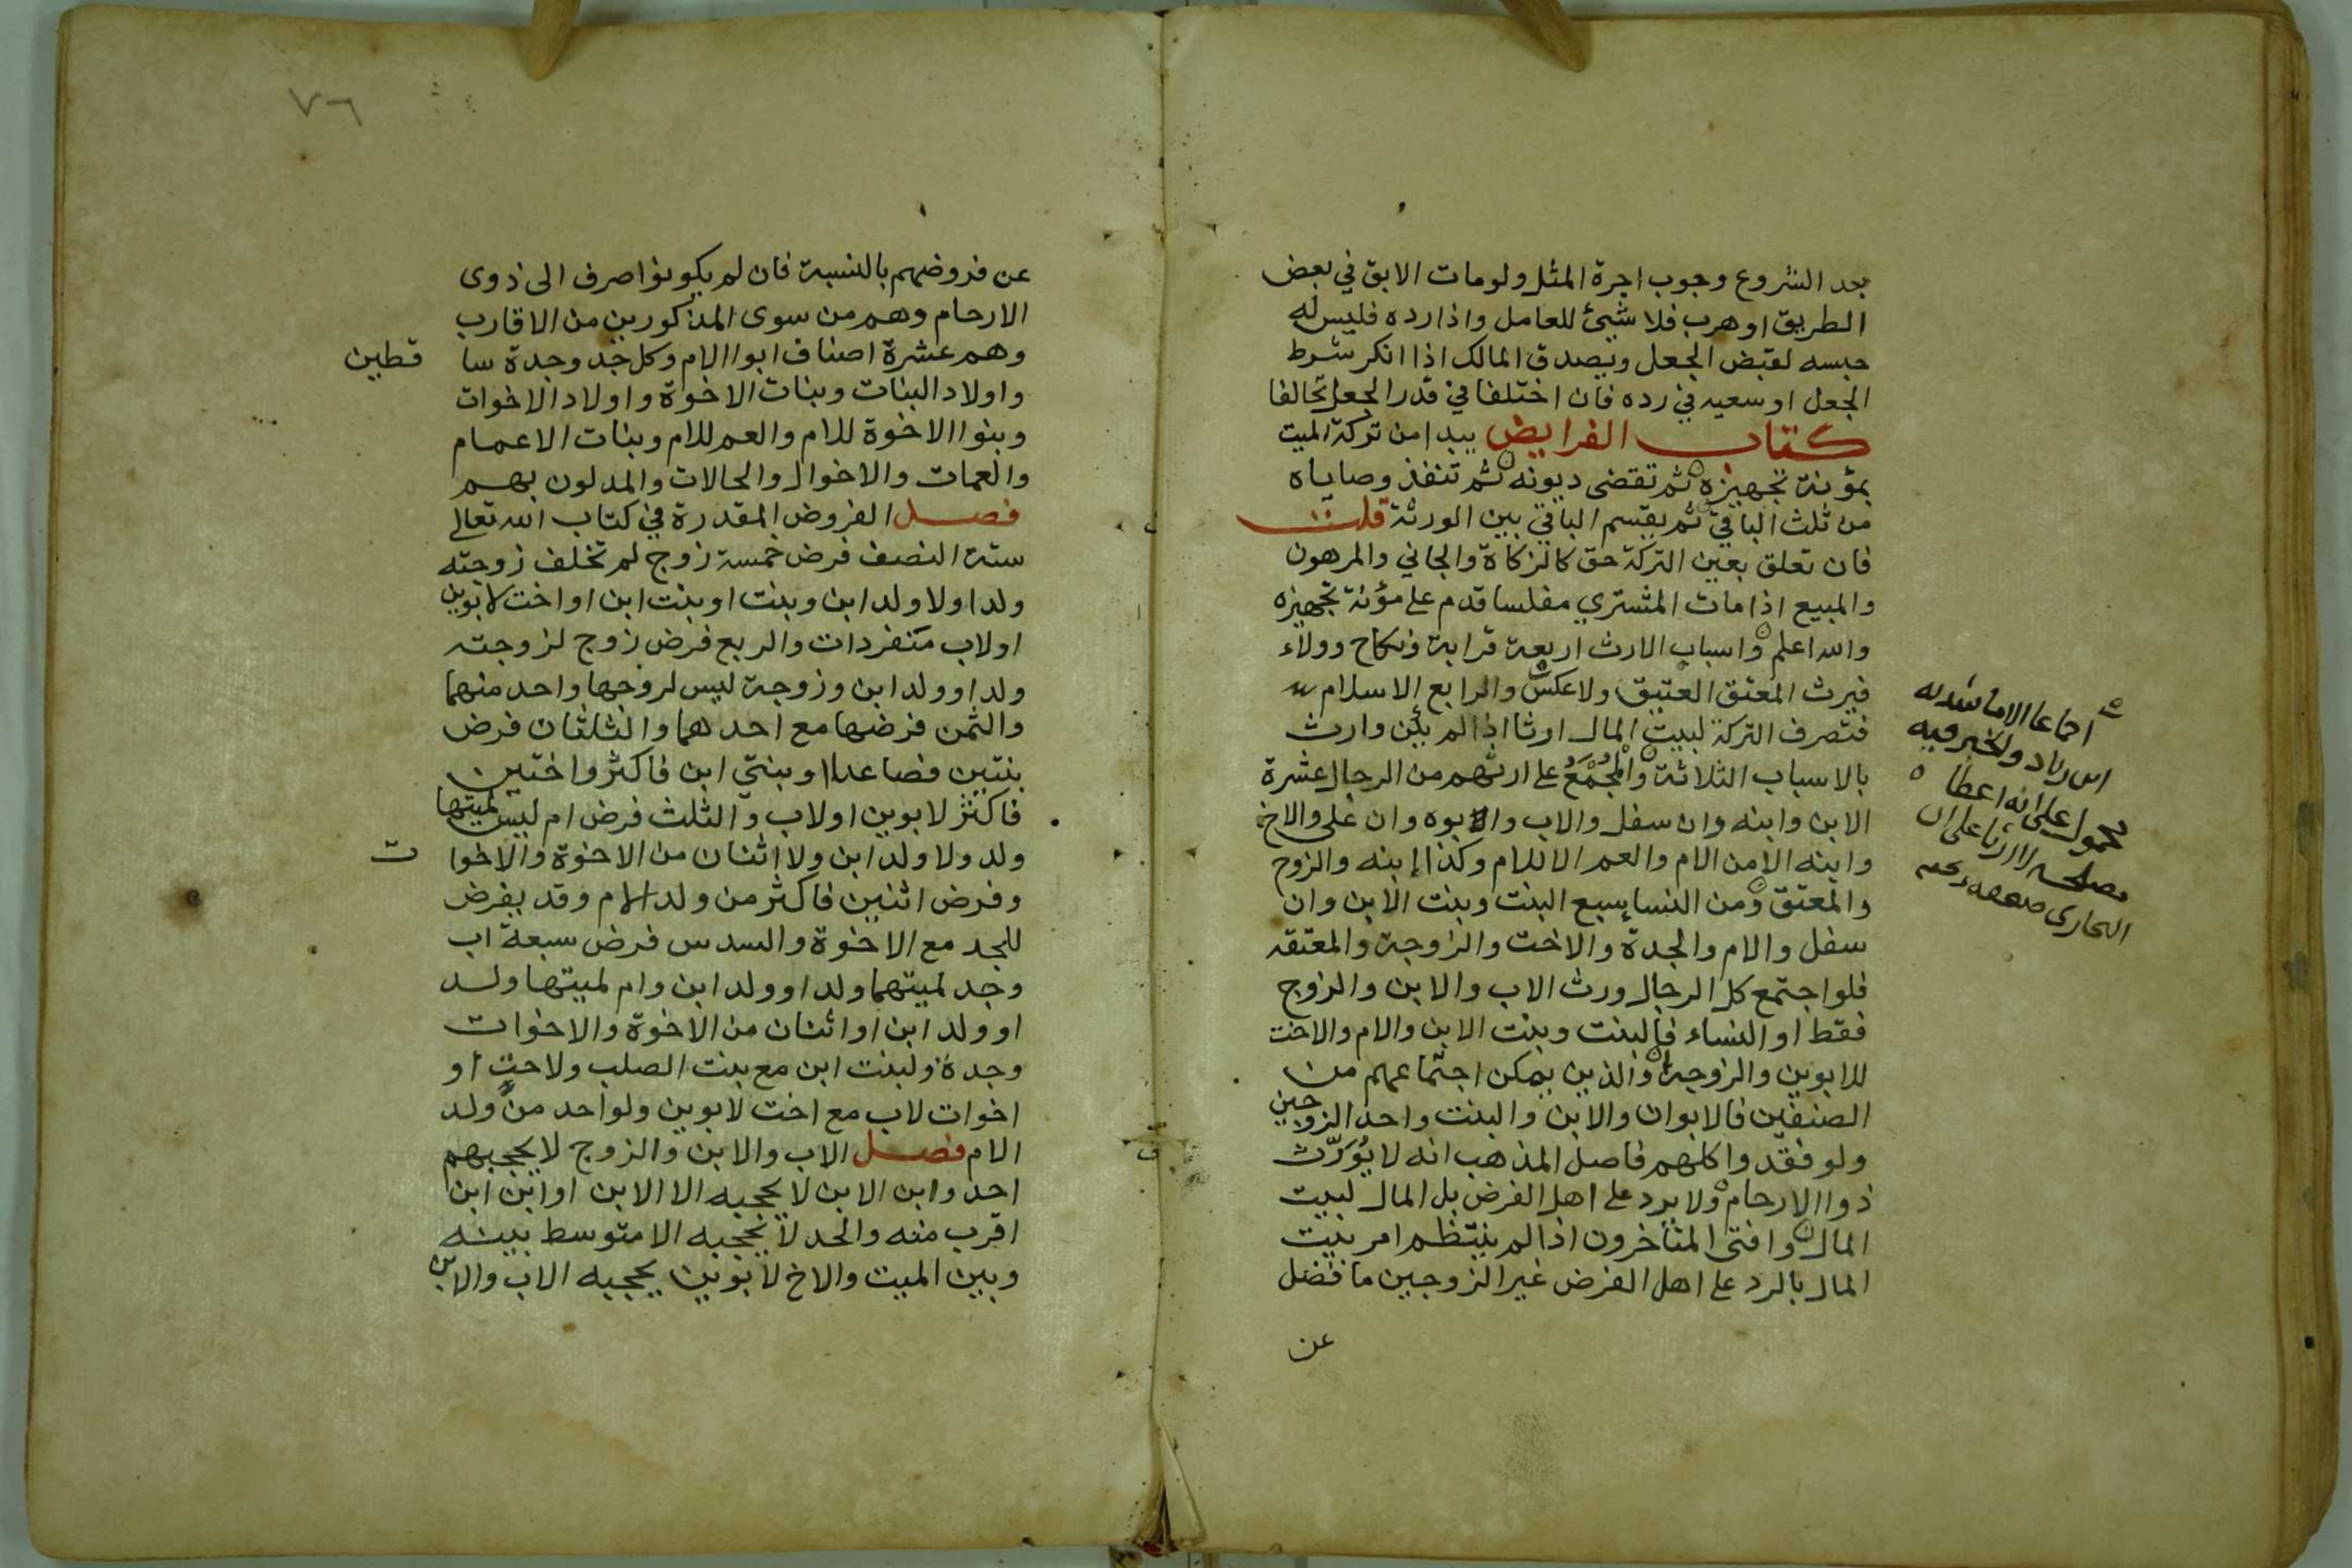 بعد الشروع وجوب اجرة المثل ولو مات الابق في بعض
الطريق او هرب فلا شيئ للعامل واذا رده فليس له
حبسه لقبض الجعل ويصدق المالك اذا انكر شرط
الجعل او سعيه في رده فان اختلفا في قدر الجعل تحالفا
كتاب الفرايض يبدا من تركة الميت
بمؤنة تجهيزه ثم تقضى ديونه ثم تنفذ وصاياه
من ثلث الباقي ثم يقسم الباقي بين الورثة قلت
فان تعلق بعين التركة حق كالزكاة والجاني والمرهون
والمبيع اذا مات المشتري مفلسا قدم على مؤنة تجهيزه
والله اعلم واسباب الارث اربعة قرابة ونكاح وولاء
فيرث المعتق العتيق ولا عكس والرابع الاسلام
فتصرف التركة لبيت المال ارثا اذا لم يكن وارث
بالاسباب الثلاثة والمُجْمَعُ على ارثهم من الرجال عشرة
الابن وابنه وان سفل والاب وابوه وان على والاخ
وابنه الا من الام والعم الا للام وكذا ابنه والزوج
والمعتق ومن النسا سبع البنت وبنت الابن وان
سفل والام والجدة والاخت والزوجة والمعتقه
فلو اجتمع كل الرجال ورث الاب والابن والزوج
فقط او النساء فالبنت وبنت الابن والام والاخت
للابوين والزوجة والذين يمكن اجتماعهم من
الصنفين فالابوان والابن والبنت واحد الزوجين
ولو فقدوا كلهم فاصل المذهب انه لا يُوَرّث
ذوا الارحام ولا يرد على اهل الفرض بل المال لبيت
المال وافتى المتأخرون اذا لم ينتظم امر بيت
المال بالرد على اهل الفرض غير الزوجين ما فضل
عن
محمول على انه اعطا
٧٦
عن فروضهم بالنسبة فان لم يكونوا صرف الى ذوى
الارحام وهم من سوى المذكورين من الاقارب
وهم عشرة اصناف ابوا الام وكل جد وجدة سا قطين
واولاد البنات وبنات الاخوة واولاد الاخوات
وبنوا الاخوة للام والعم للام وبنات الاعمام
والعمات والاخوال والخالات والمدلون بهم
فصل الفروض المقدرة في كتاب الله تعالى
ستة النصف فرض خمسة زوج لم تخلف زوجته
ولدا ولا ولد ابن وبنت او بنت ابن او اخت لابوين
او لاب منفردات والربع فرض زوج لزوجته
ولد او ولد ابن وزوجة ليس لزوجها واحد منهما
والثمن فرضها مع احدهما والثلثان فرض
بنتين فصاعدا وبنتي ابن فاكثر واختين
فاكثر لابوين او لاب والثلث فرض ام ليس لميتها
ولد ولا ولد ابن ولا اثنان من الاخوة والاخوا ت
وفرض اثنين فاكثر من ولد الام وقد يفرض
للجد مع الاخوة والسدس فرض سبعة اب
وجد لميتهما ولد او ولد ابن وام لميتها ولد
او ولد ابن او اثنان من الاخوة والاخوات
وجدة ولبنت ابن مع بنت الصلب ولاخت او
اخوات لاب مع اخت لابوين ولواحد من ولد
الام فصل الاب والابن والزوج لا يحجبهم
احد وابن الابن لا يحجبه الا الابن او ابن ابن
اقرب منه والجد لا يحجبه الا متوسط بينه
وبين الميت والاخ لابوين يحجبه الاب والابن